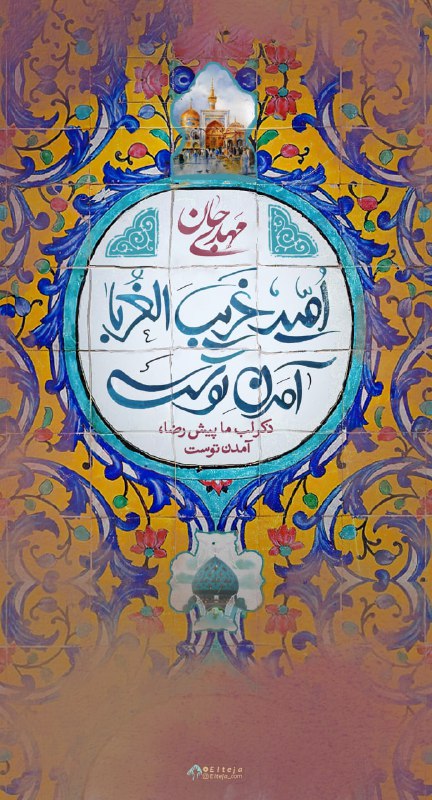 مهدی جان
اُمّید غریب الغُربا
آمدن توست
ذکر لب ما پیش رضا،
آمدن توست
Elteja
@Elteja_com